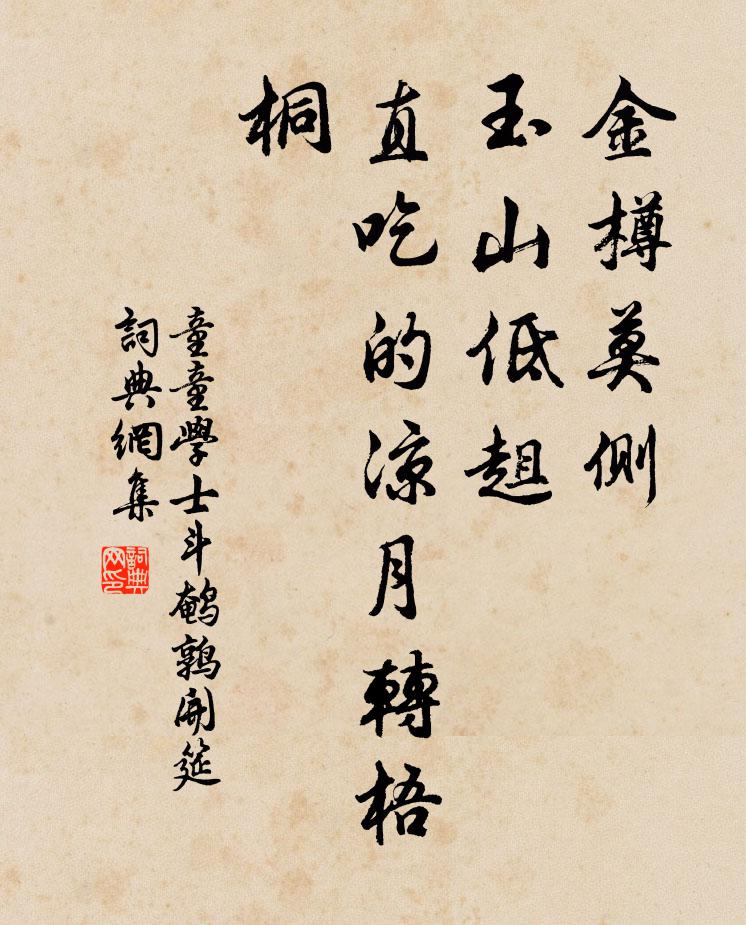 金樽莫側
玉山低趄
直吃的涼月轉梧
桐
童童學士斗鵪鶉開筵
詞典網集
詞典
网印